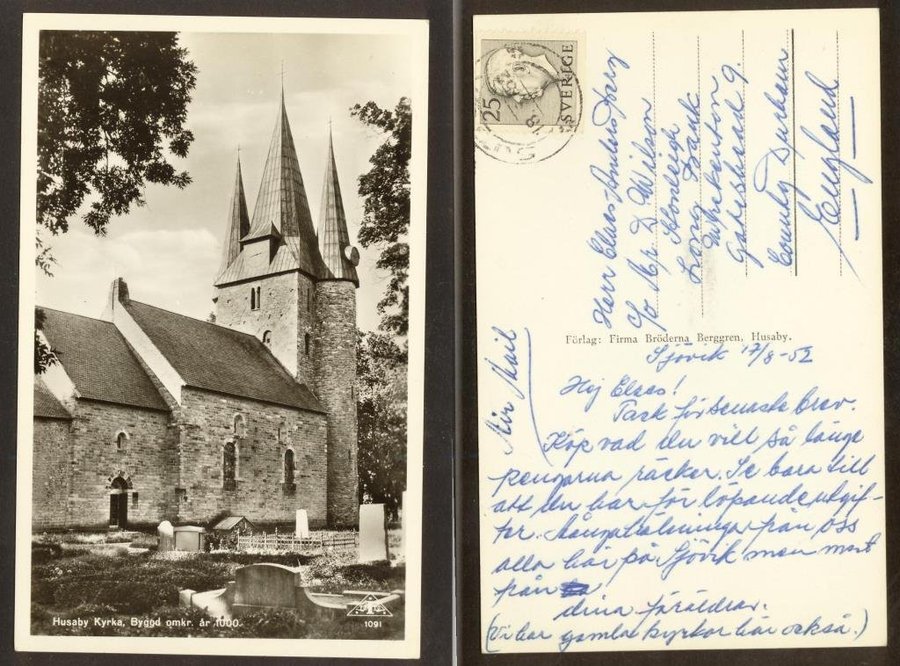 Husaby Kyrka, Bygod omkr. år 1000.
1091
25
SVERIGE
Herr Claes Anderberg
c/o Mr. D. Wilson
Stoneleigh
Long Bank
Wrekenton
Gateshead 9.
County Durham
England
Förlag: Firma Bröderna Berggren, Husaby.
Air Mail
Sjövik 17/8-52
Hej Claes!
Tack för senaste brev.
Köp vad du vill så länge
pengarna räcker. Se bara till
att du har för löpande utgif-
ter. Många hälsningar från oss
alla här på Sjövik men mest
från
dina föräldrar.
(Vi har gamla kyrkor här också.)